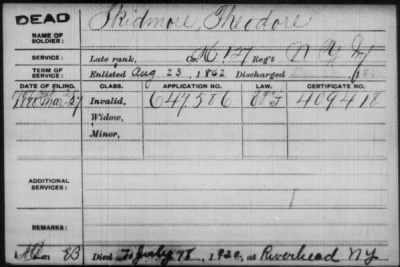 DEAD
Skidmore, Theodore
NAME OF SOLDIER:
SERVICE: Late rank, Co. H 127 Reg't N Y
TERM OF SERVICE: Enlisted Aug 23, 1862 Discharged , 18
DATE OF FILING. CLASS. APPLICATION NO. LAW. CERTIFICATE NO.
1888 Mar 27 Invalid, 647,586 409418
Widow,
Minor,
ADDITIONAL SERVICES:
REMARKS:
Died July , 1920, at Riverhead N.Y.